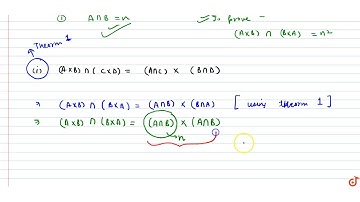 ① A∩B = n
To prove -
(A×B) ∩ (B×A) = n²
Theorem 1
(i) (A×B) ∩ (C×D) = (A∩C) × (B∩D)
⇒ (A×B) ∩ (B×A) = (A∩B) × (B∩A) [using theorem 1]
⇒ (A×B) ∩ (B×A) = (A∩B) × (A∩B)
n